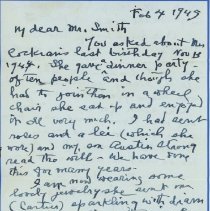 Feb 4 1949
My dear Mr. Smith
You asked about Mrs
Cockrans last birthday Nov 14
1948. She gave "dinner party -
of ten people and though she
has to join than in a wheel
chair she sat up and enjoyed
it all very much. I had sent
roses and a lei (which she
wore) and my son Austin Strong
read the will - We have done
this for many years.
I am now wearing some
lovely jewelry she sent me
(Cartier) sparkling with diamonds